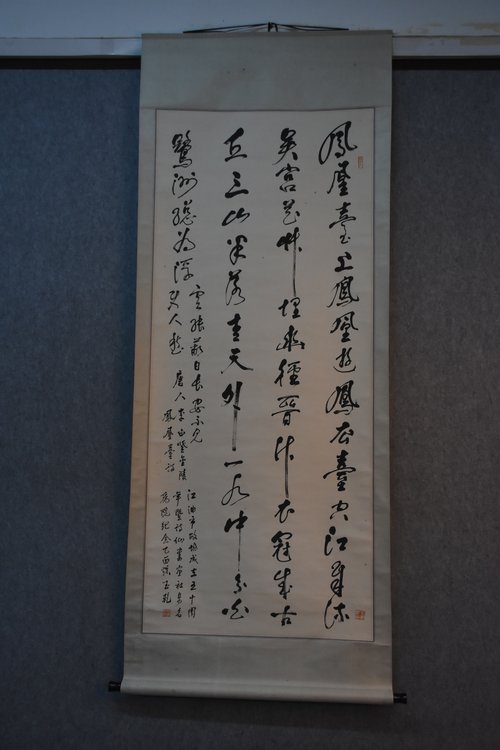 鳳凰臺上鳳凰遊鳳去臺空江自流
吳宮花草埋幽徑晉代衣冠成古
丘三山半落青天外一水中分白
鷺洲總為浮
雲能蔽日長安不見
使人愁
唐人李白登金陵
鳳凰臺詩
江油市政協成立五十周
年暨詩仙書
紀念乙酉